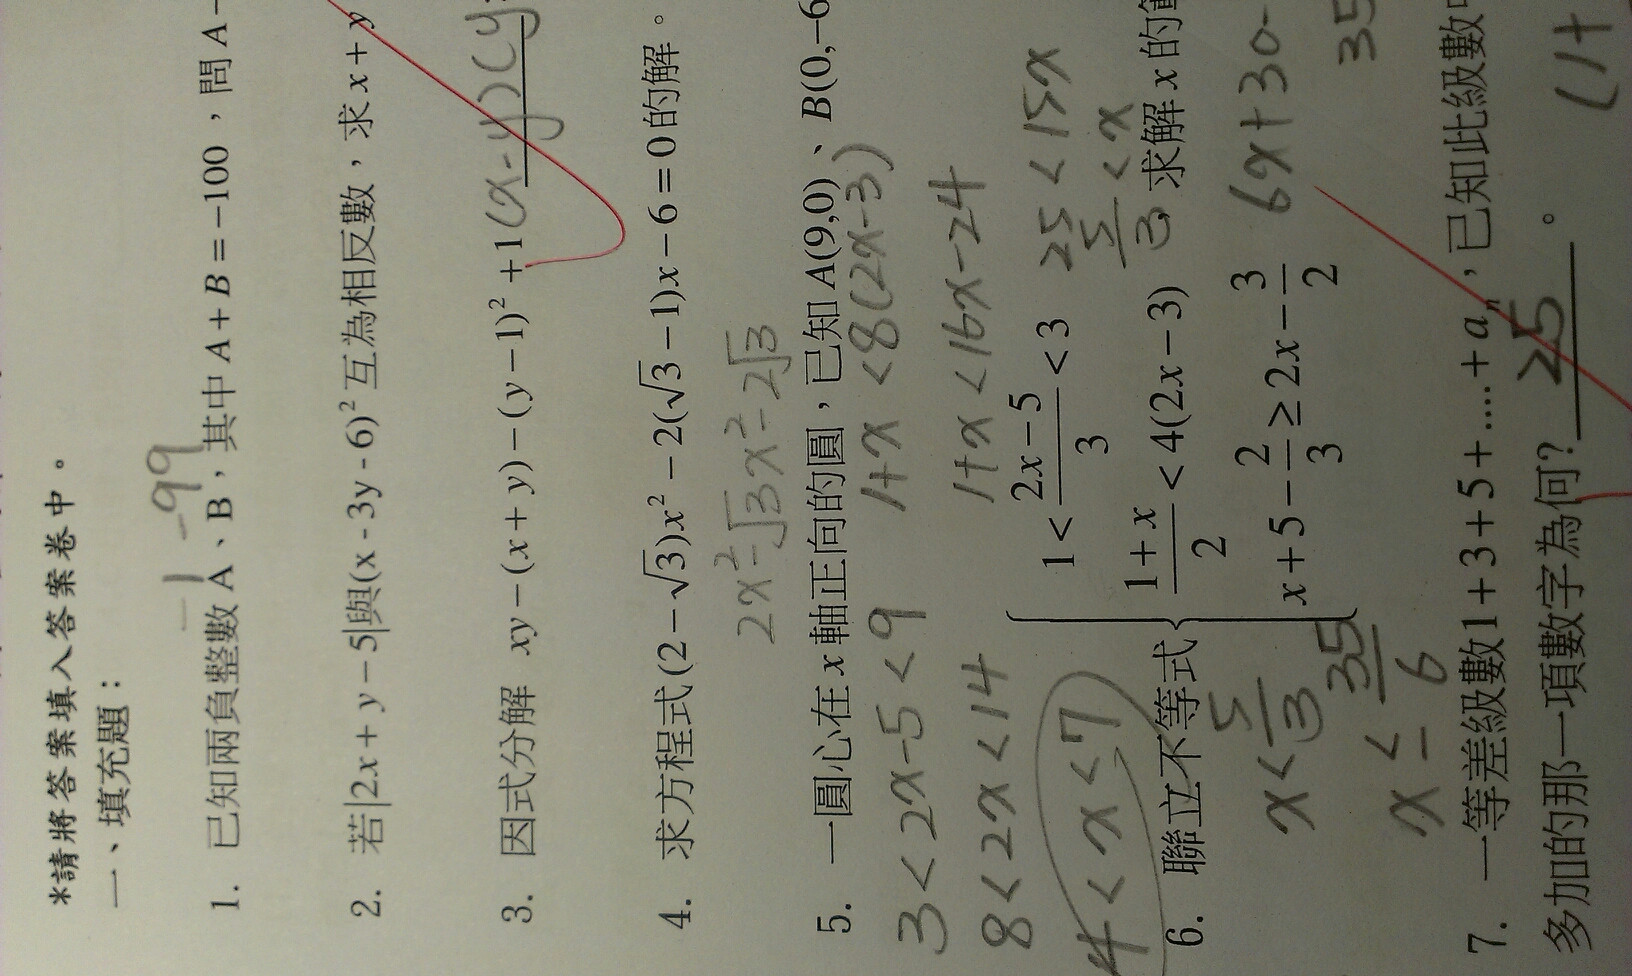 *請將答案填入答案卷中。
一、填充題：
-1 -99
1. 已知兩負整數A、B，其中 A + B = -100，問 A -
2. 若|2x + y - 5|與(x - 3y - 6)² 互為相反數，求 x + y
3. 因式分解 xy - (x + y) - (y - 1)² + 1 (x-y)(y-
4. 求方程式(2 - √3)x² - 2(√3 - 1)x - 6 = 0 的解。
2x² - √3x² - 2√3
5. 一圓心在 x 軸正向的圓，已知 A(9,0)、B(0,-6
3 < 2x - 5 < 9
8 < 2x < 14
4 < x < 7
1+x < 8(2x-3)
1+x < 16x-24
25 < 15x
5/3 < x
6. 聯立不等式
1 < (2x - 5)/3 < 3
(1 + x)/2 < 4(2x - 3) ，求解 x 的範
x + 5 - 2/3 ≥ 2x - 3/2
x < 5/3
x ≤ 35/6
6x + 30 -
35
7. 一等差級數 1 + 3 + 5 + ..... + aₙ，已知此級數中
多加的那一項數字為何? 25 。
(1+